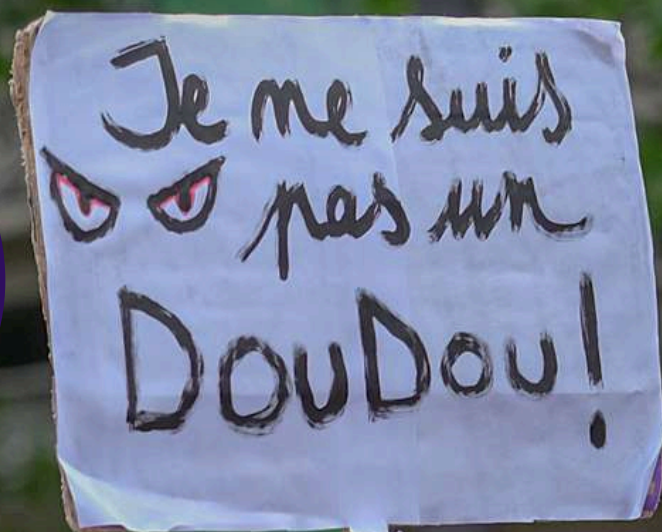 Je ne suis
pas un
DouDou!